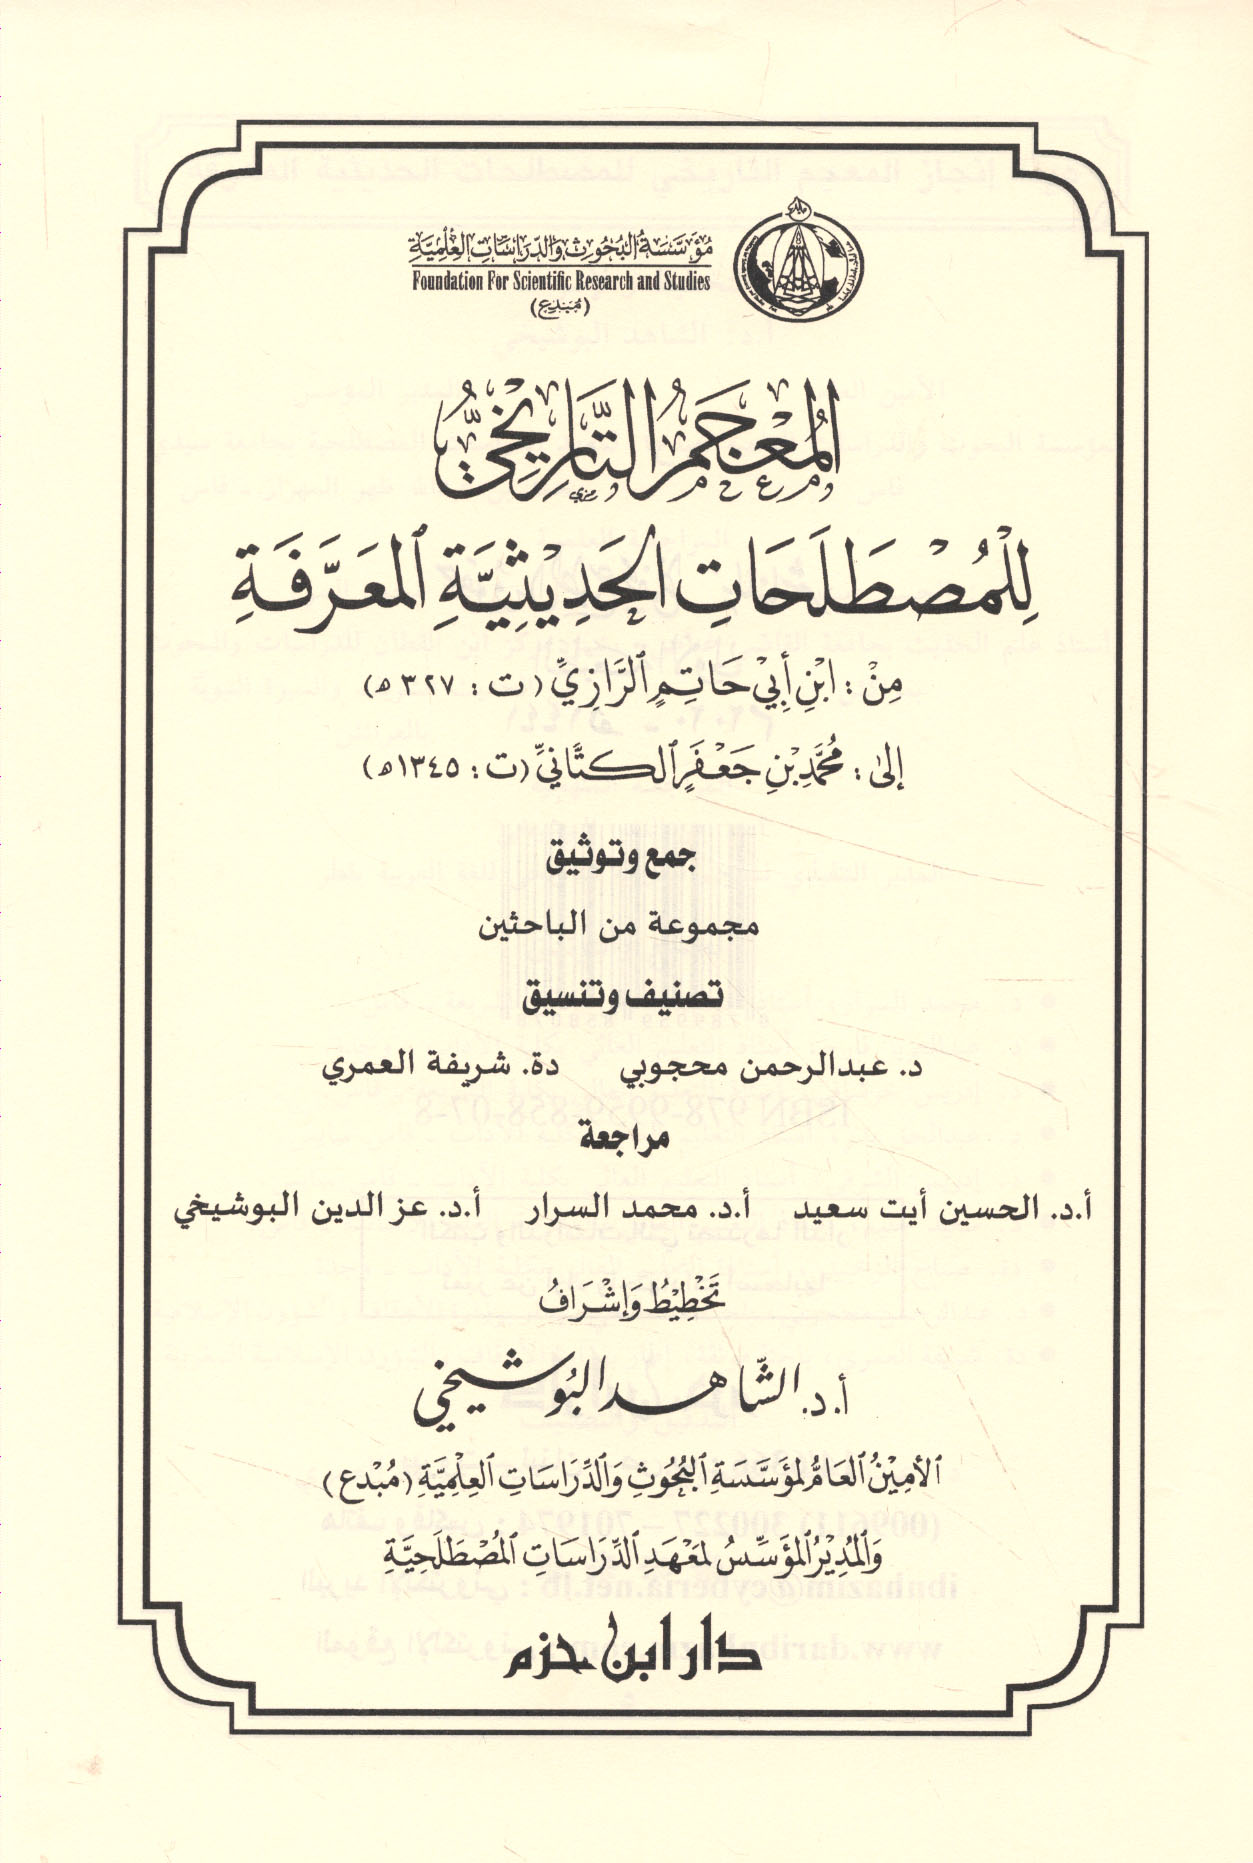 مُؤَسَّسَةُ البُحُوثِ وَالدِّرَاسَاتِ العِلْمِيَّةِ
Foundation For Scientific Research and Studies
(مُبْدِع)
المُعْجَمُ التَّارِيْخِيُّ
لِلْمُصْطَلَحَاتِ الحَدِيْثِيَّةِ المُعَرَّفَةِ
مِنْ : ابْنِ أَبِيْ حَاتِمٍ الرَّازِيِّ (ت : ٣٢٧ هـ)
إلىٰ : مُحَمَّدِ بْنِ جَعْفَرٍ الكتَّانِيِّ (ت : ١٣٤٥هـ)
جمع وتوثيق
مجموعة من الباحثين
تصنيف وتنسيق
د. عبدالرحمن محجوبي دة. شريفة العمري
مراجعة
أ.د. الحسين أيت سعيد أ.د. محمد السرار أ.د. عز الدين البوشيخي
تَخْطِيْطُ وَإِشْرَافُ
أ. د. الشَّاهد البُوشيخي
الأمِيْنُ العَامُّ لمُؤَسَّسَةِ البُحُوثِ وَالدِّرَاسَاتِ العِلْمِيَّةِ (مُبْدع)
وَالمُدِيْرُ المُؤَسِّسُ لمَعْهَدِ الدِّرَاسَاتِ المُصْطَلَحِيَّةِ
دار ابن حزم